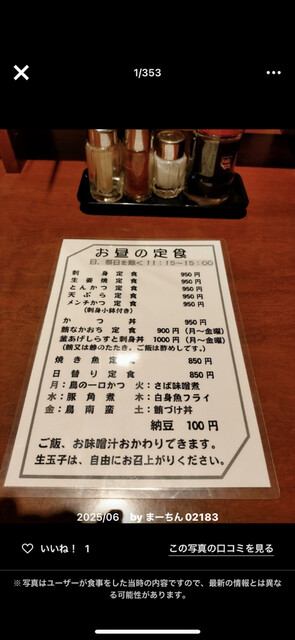 1/353
お昼の定食
日、祭日を除く11:15～15:00
刺身定食 950円
生姜焼定食 950円
とんかつ定食 950円
天ぷら定食 950円
メンチかつ定食 950円
(刺身小鉢付き)
かつ丼 950円
鮪なかおち定食 900円(月～金曜)
釜あげしらすと刺身丼 1000円(月～金曜)
(鮪又は鯵のたたき。ご飯は酢めしです。)
焼き魚定食 850円
日替り定食 850円
月:鳥の一口かつ 火:さば味噌煮
水:豚角煮 木:白身魚フライ
金:鳥南蛮 土:鮪づけ丼
納豆 100円
ご飯、お味噌汁おかわりできます。
生玉子は、自由にお召上がりください。
2025/06 by まーちん02183
いいね! 1
この写真の口コミを見る
※写真はユーザーが食事をした当時の内容ですので、最新の情報とは異な
る可能性があります。